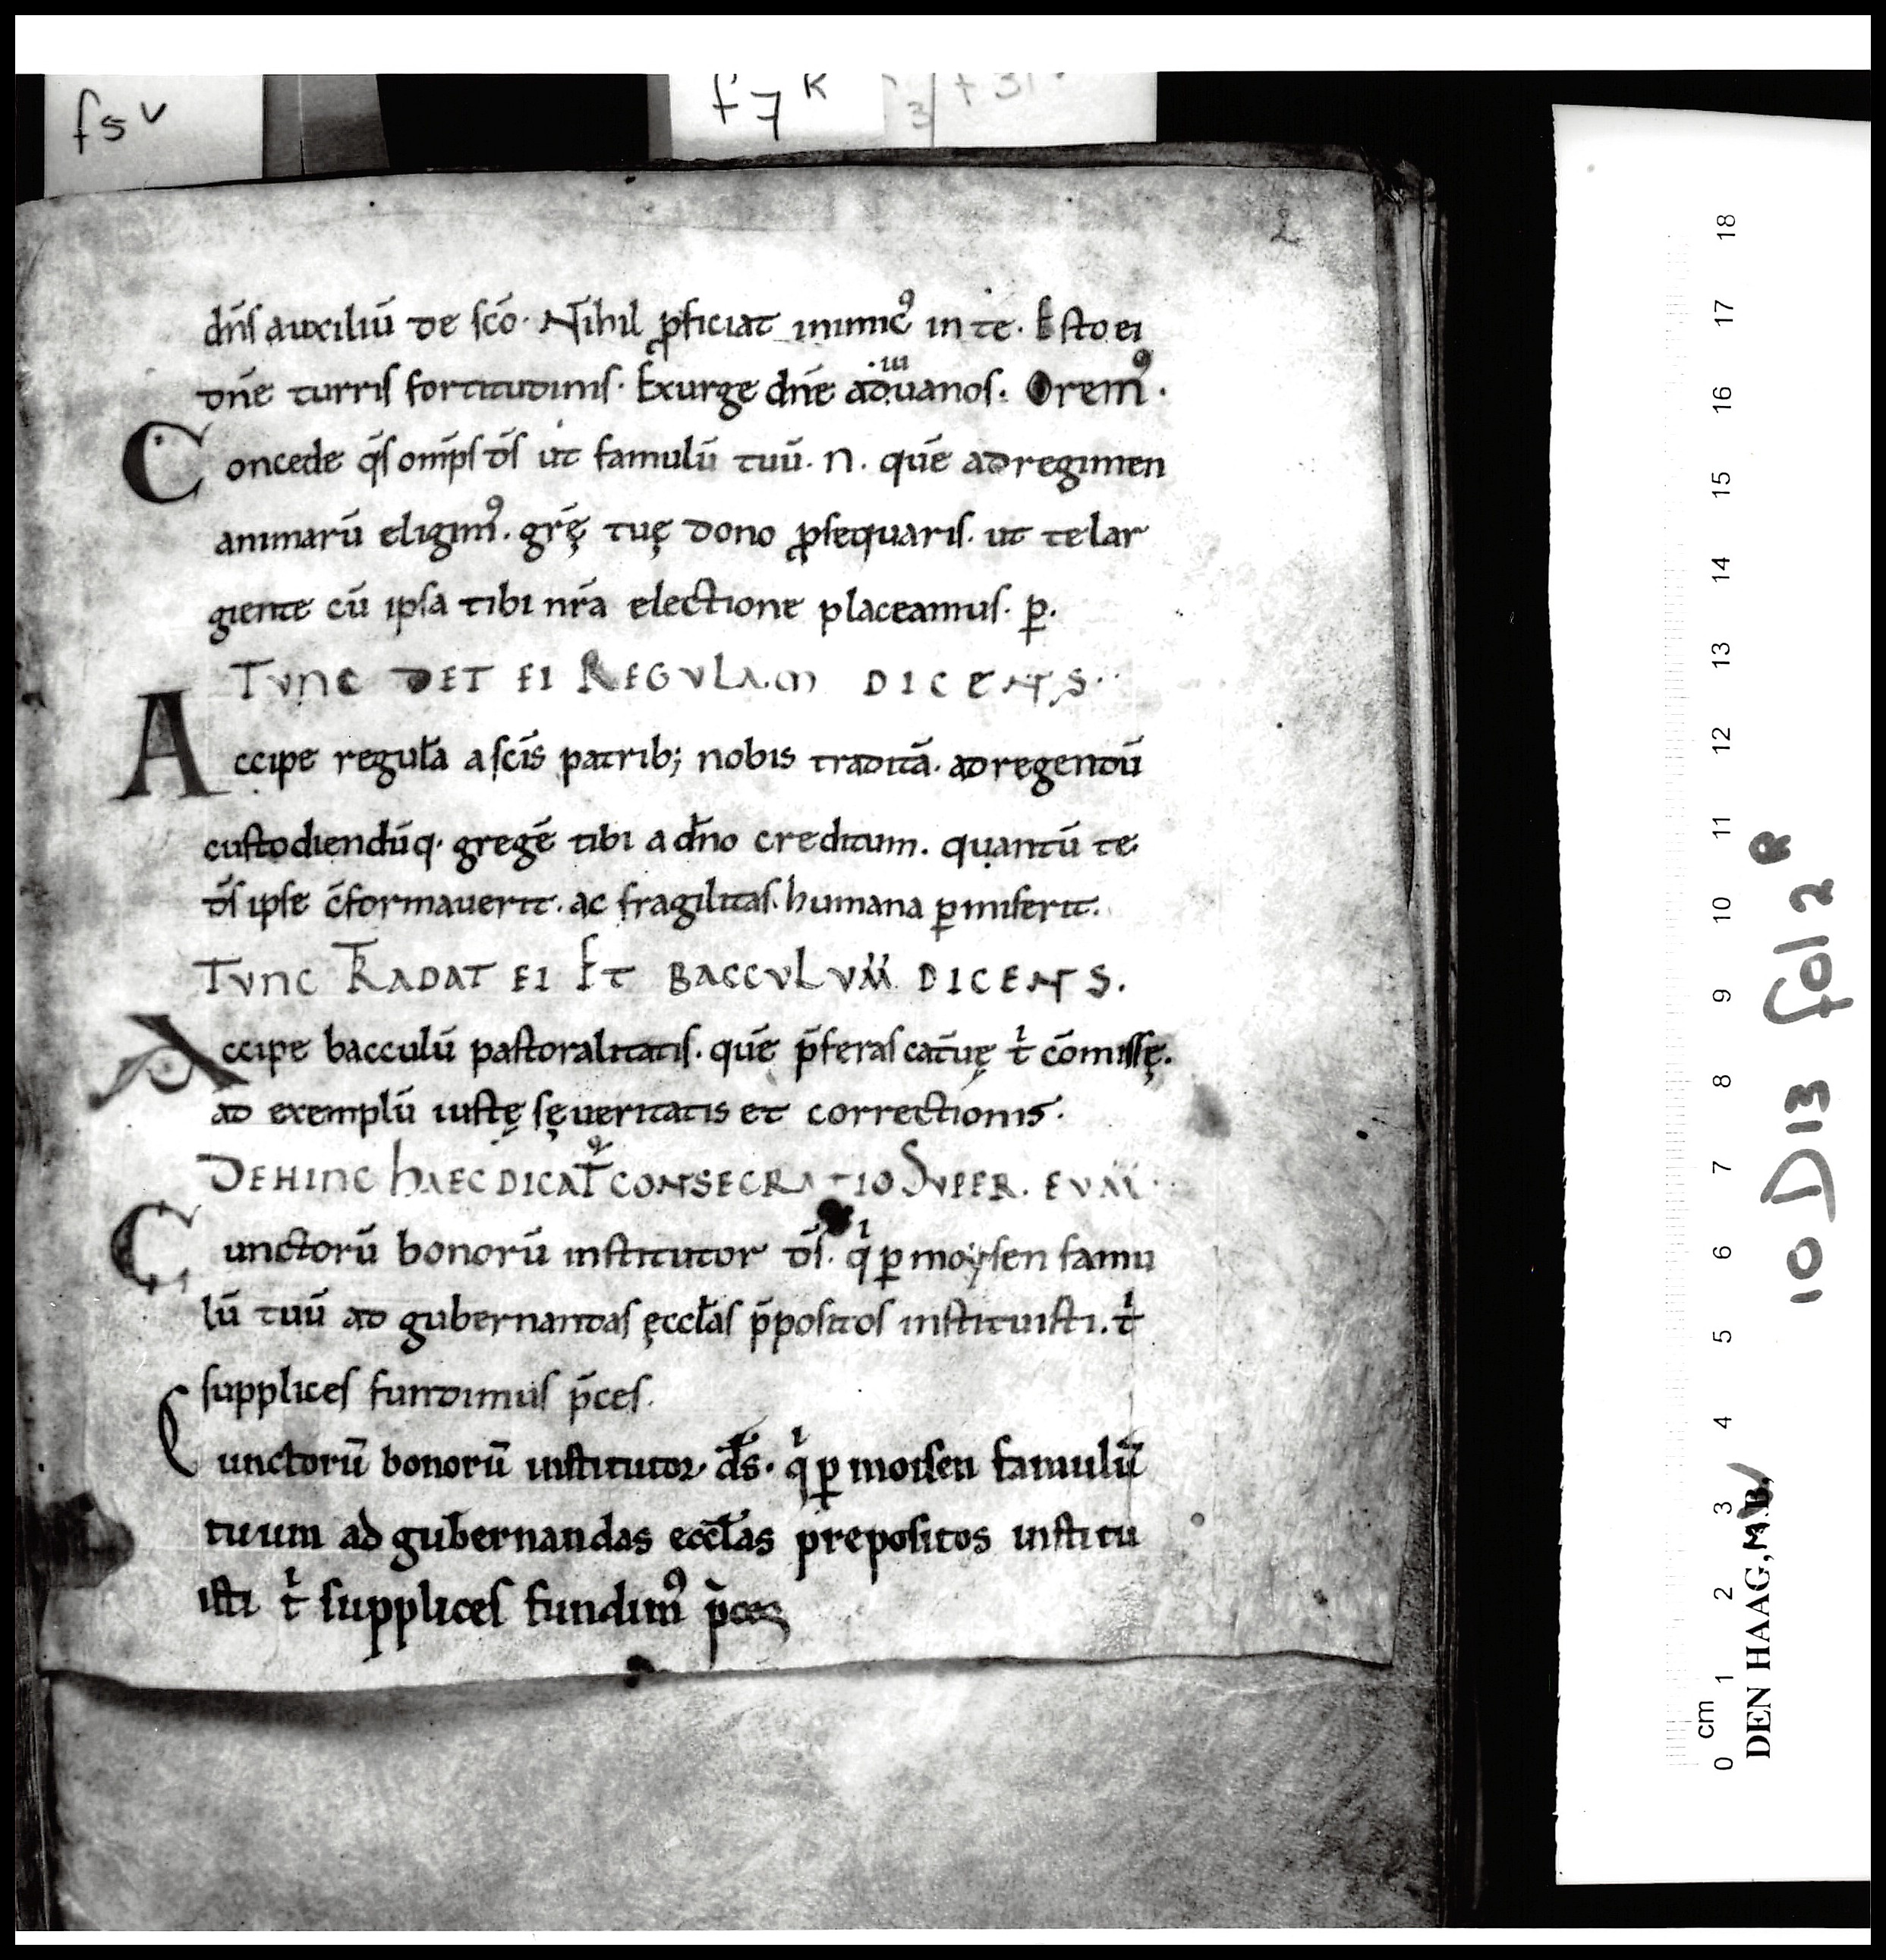 f5v
f7R
f31
2
dn̄s auxiliū de sc̄o. Nihil ꝓficiat inimicꝰ in te. Esto ei
dn̄e turris fortitudinis. Exurge dn̄e adiuuanos. Oremꝰ.
Concede q̄s om̄ps d̄s ut famulū tuū. n. quē ad regimen
animarū eligimꝰ. gr̄ę tuę dono ꝓsequaris. ut te lar
giente cū ipsa tibi nr̄a electione placeamus. p̲.
TVNC DET EI REGVLAM DICENS.
Accipe regulā a sc̄is patrib; nobis traditā. ad regendū
custodiendūq. gregē tibi a dn̄o creditum. quantū te
d̄s ipse c̄formauerit. ac fragilitas humana ꝑmiserit.
TVNC TRADAT EI ET BACCVLVM DICENS.
Accipe bacculū pastoralitatis. quē p̄feras cat̄uę tͥ cōmissę.
ad exemplū iustę sęueritatis et correctionis.
DEHINC HAEC DICAT̄ CONSECRATIO SVPER. EVM.
Cunctorū bonorū institutor d̄s. qͥ ꝑ moysen famu
lū tuū ad gubernandas ęccl̄as p̄positos instituisti. tͥ
supplices fundimus p̄ces.
Cunctorū bonorū institutor. d̄s. qͥ ꝑ moisen famulū
tuum ad gubernandas eccl̄as prepositos institu
isti tͥ supplices fundimꝰ p̄ces
0 1 2 3 4 5 6 7 8 9 10 11 12 13 14 15 16 17 18
cm
DEN HAAG, M.B,
10 D13 fol 2R